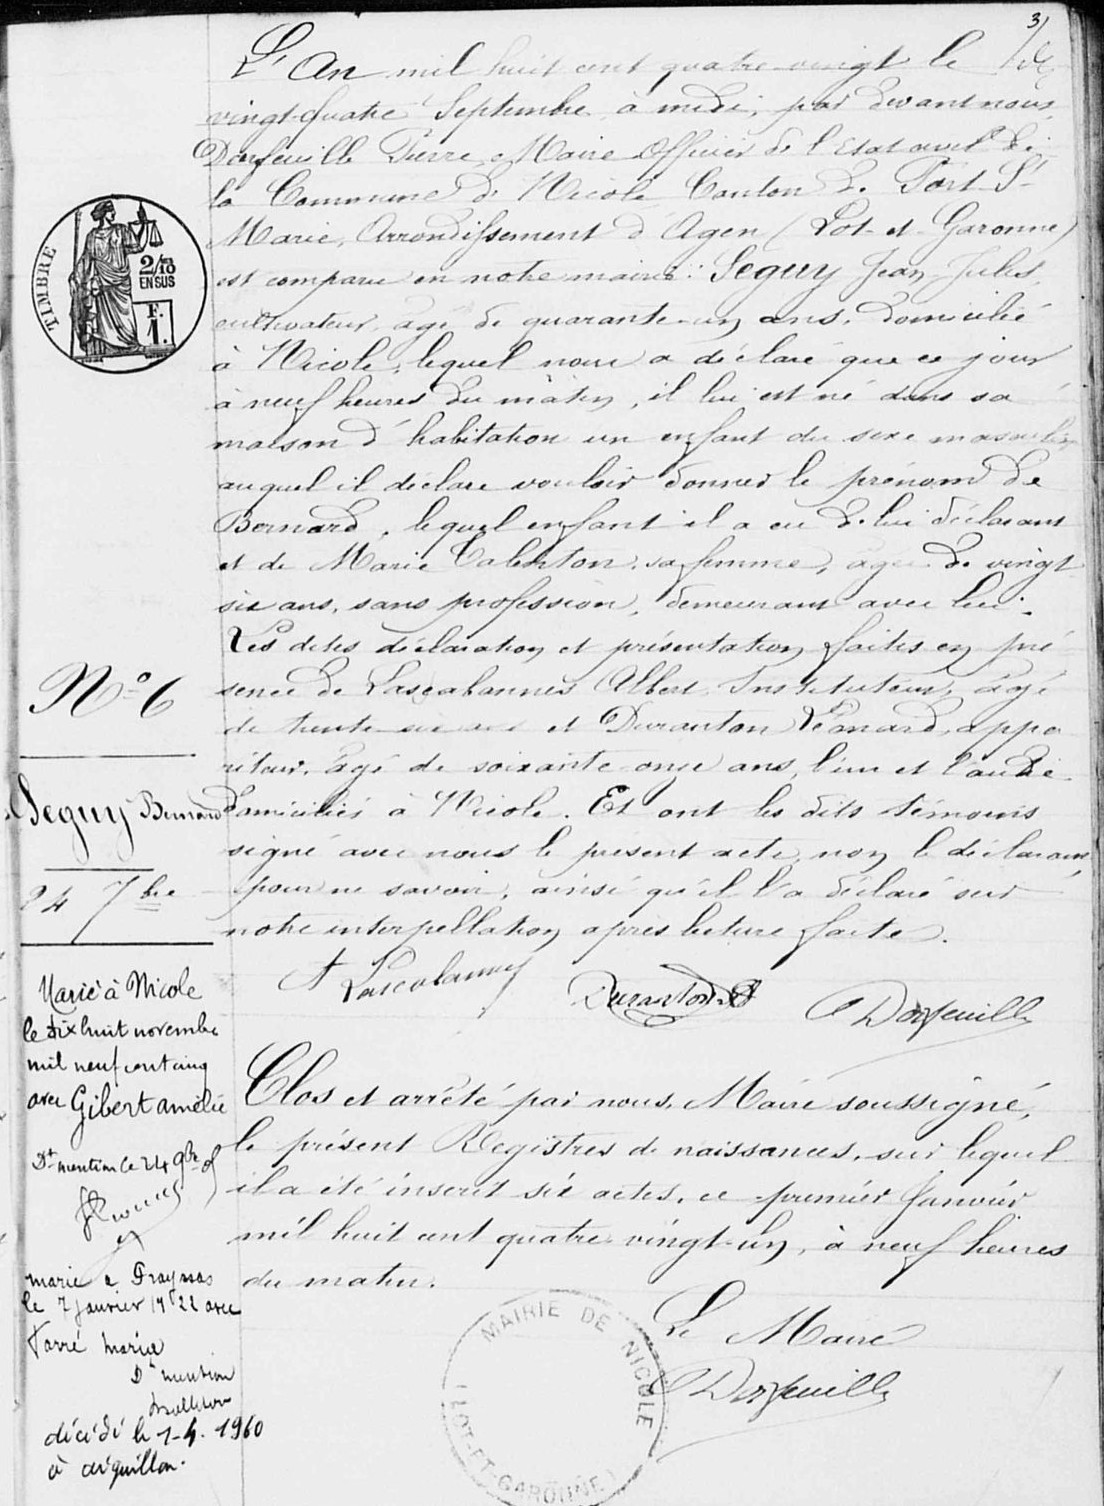 3
L'An mil huit cent quatre-vingt le
vingt-quatre Septembre à midi, par devant nous
Dorfeuille Pierre Maire Officier de l'Etat civil de
la Commune de Nicole Canton de Port-Ste
Marie, Arrondissement d'Agen (Lot-et-Garonne)
est comparu en notre mairie : Seguy Jean Jules,
cultivateur, âgé de quarante-un ans, domicilié
à Nicole, lequel nous a déclaré que ce jour
à neuf heures du matin, il lui est né dans sa
maison d'habitation un enfant du sexe masculin
auquel il déclare vouloir donner le prénom de
Bernard, lequel enfant il a eu de lui déclarant
et de Marie sa femme, âgée de vingt
six ans, sans profession, demeurant avec lui.
Les dites déclaration et présentation faites en pré
sence de Lascabannes Albert, Instituteur, âgé
de trente ans et Duranton Léonard, appa
riteur, âgé de soixante onze ans, l'un et l'autre
domiciliés à Nicole. Et ont les dits témoins
signé avec nous le présent acte, non le déclarant
pour ne savoir, ainsi qu'il l'a déclaré sur
notre interpellation après lecture faite.
A Lascabannes Duranton Dorfeuille
TIMBRE
2/10
EN SUS
F.
1.
No 6
Seguy Bernard
24 7bre
Marié à Nicole
le dix huit novembre
mil neuf cent cinq
avec Gibert amélie
Dt mention le 24 9bre
marié à Frayssas
le 7 janvier 1922 avec
Tarré maria
Dt mention
décédé le 1-4-1960
à aiguillon.
Clos et arrêté par nous, Maire soussigné,
le présent Registres de naissances, sur lequel
il a été inscrit six actes, ce premier Janvier
mil huit cent quatre-vingt-un, à neuf heures
du matin.
Le Maire
Dorfeuille
MAIRIE DE NICOLE
(LOT-ET-GARONNE)